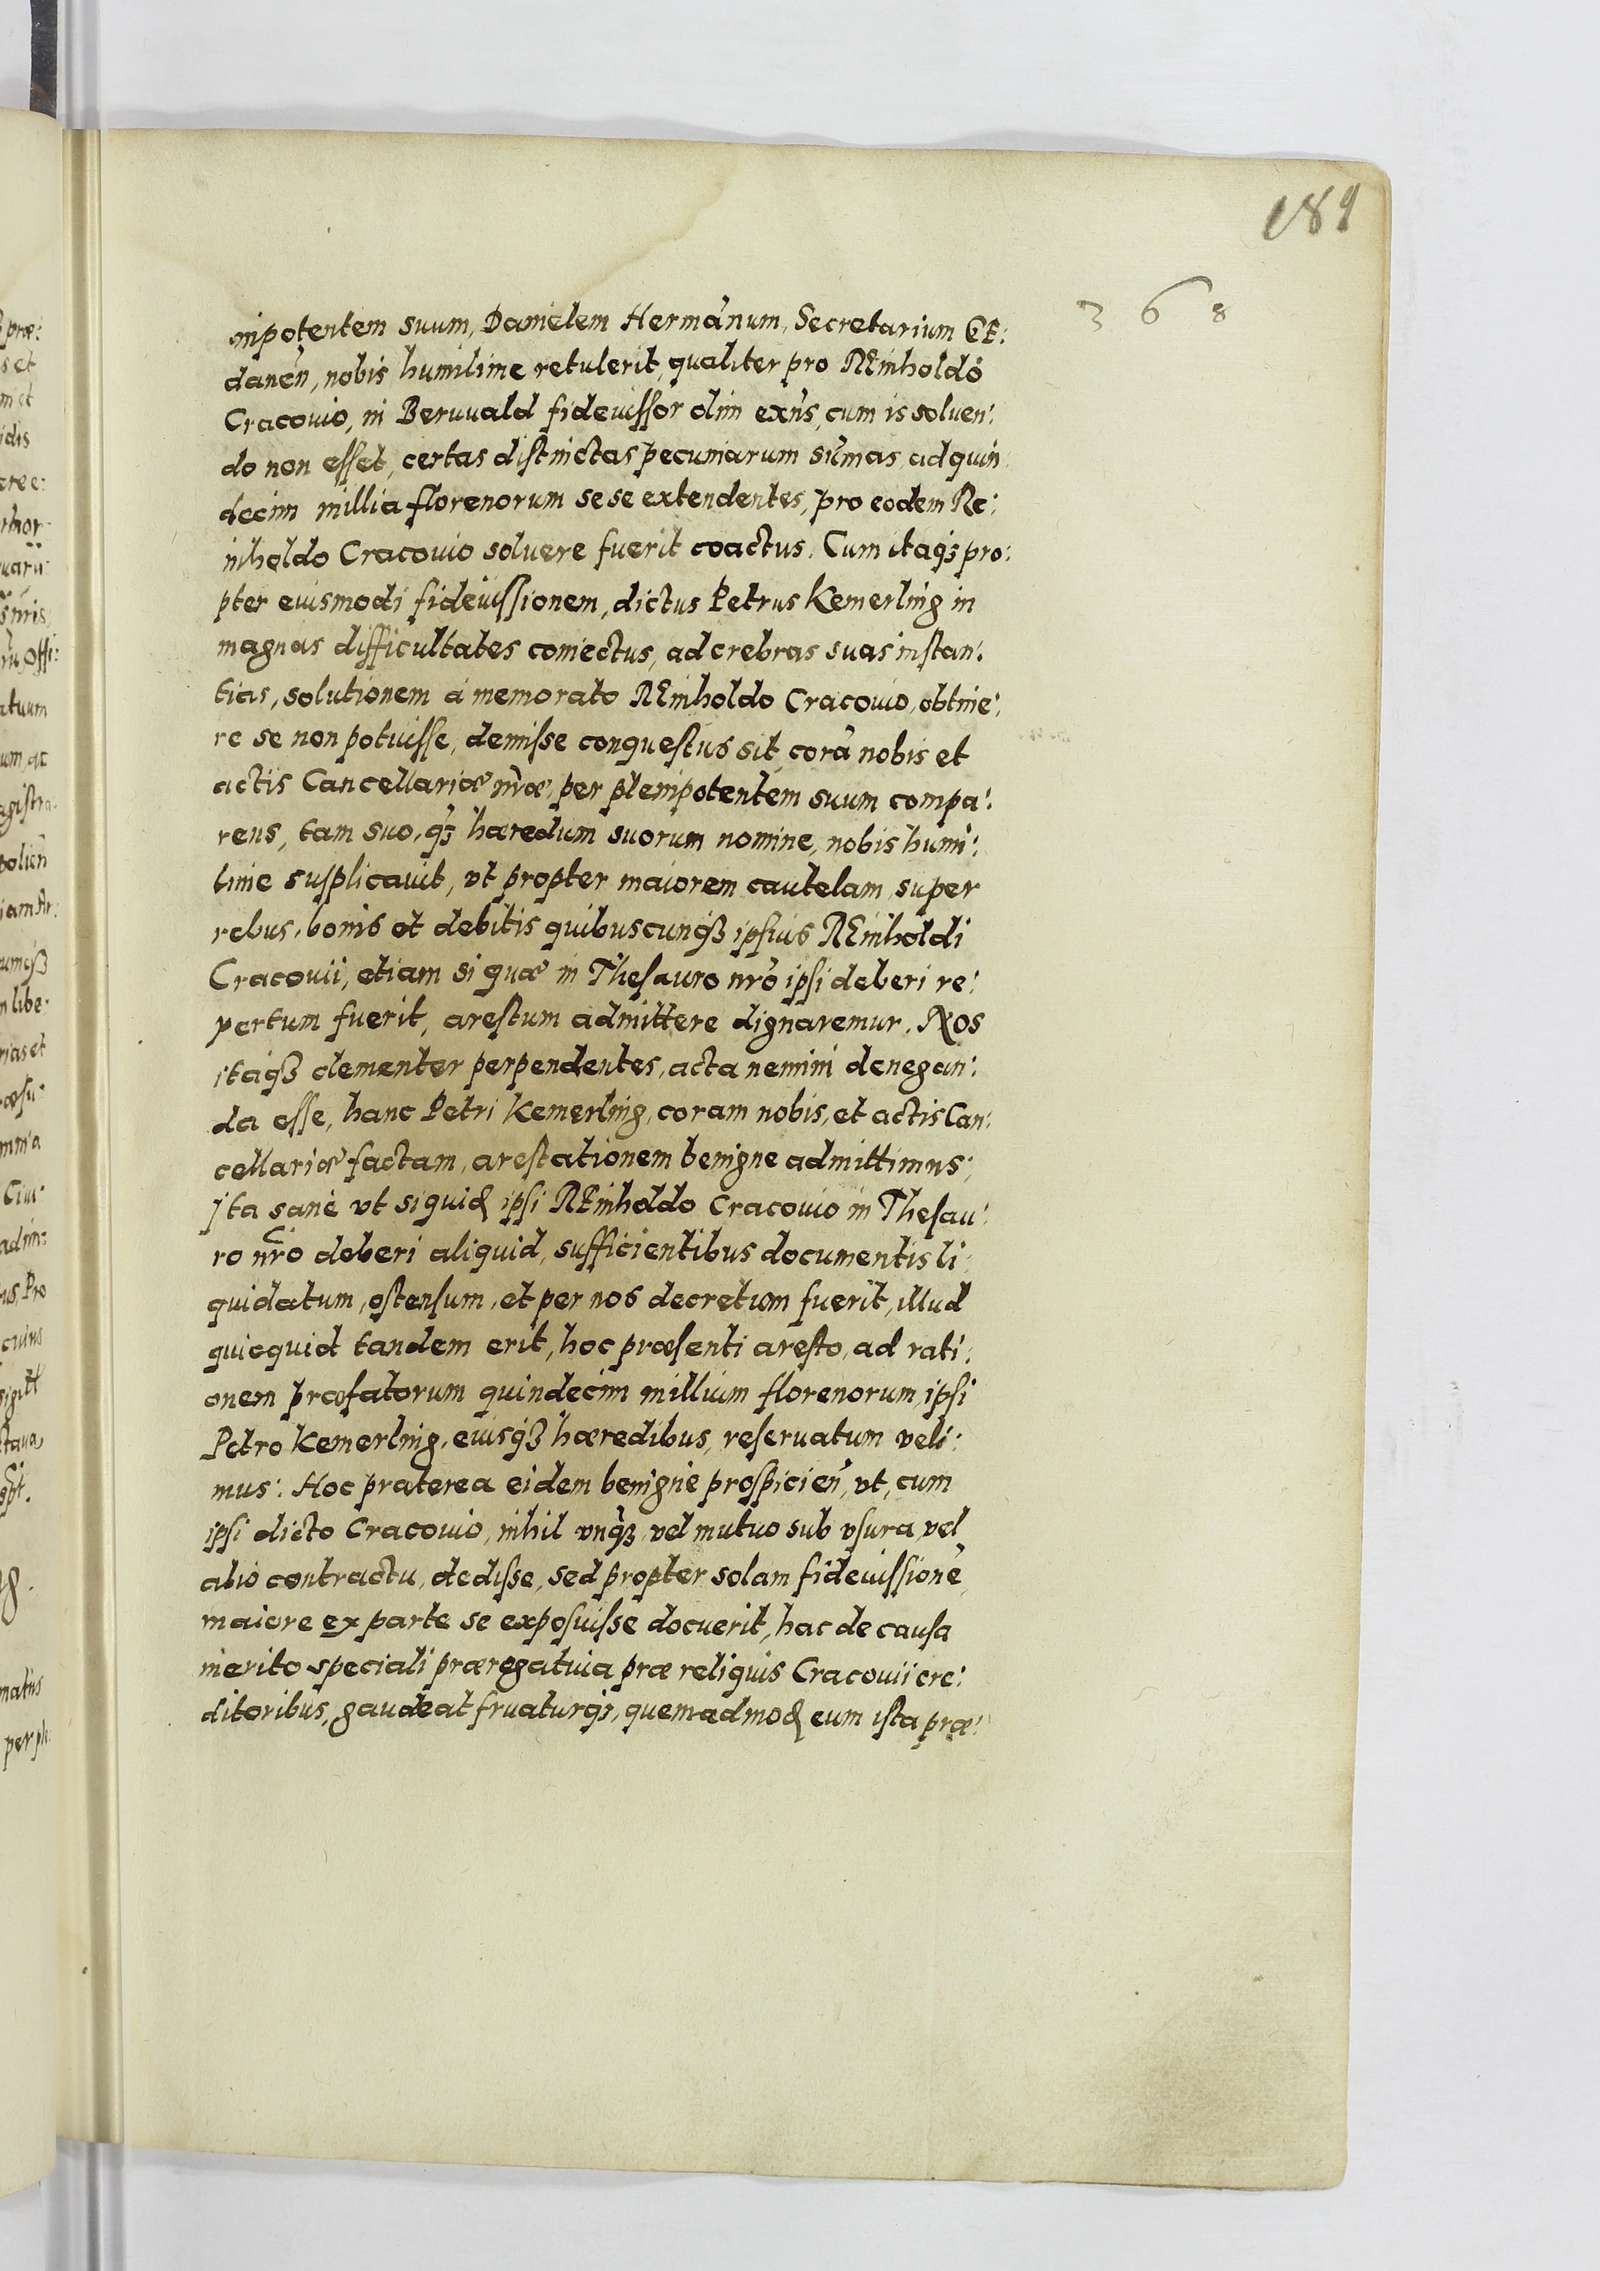 189
368
nipotentem suum, Danielem Hermānum, Secretarium GE:
daneñ, nobis humilime retulerit, qualiter pro REinholdo
Cracouio, in Beruuald fideiussor olim exñs, cum is soluen:
do non esset, certas distinctas pecuniarum sūmas, ad quin
decim millia florenorum sese extendentes, pro eodem Re:
inholdo Cracouio soluere fuerit coactus. Cum itaqꝫ pro:
pter eiusmodi fideiussionem, dictus Petrus Kemerling in
magnas difficultates coniectus, ad crebras suas instan:
tias, solutionem à memorato REinholdo Cracouio, obtine:
re se non potuisse, demisse conquestus sit, corā nobis et
actis Cancellariæ nr̄æ, per plenipotentem suum compa:
rens, tam suo, qꝫ hæredum suorum nomine, nobis humi:
lime supplicauit, vt propter maiorem cautelam, super
rebus, bonis et debitis quibuscunqꝫ ipsius REinholdi
Cracouii, etiam si quæ in Thesauro nr̄o ipsi deberi re:
pertum fuerit, arestum admittere dignaremur. NOS
itaqꝫ clementer perpendentes, acta nemini denegan:
da esse, hanc Petri Kemerling, coram nobis, et actis Can:
cellariæ factam, arestationem benigne admittimus;
Ita sanè vt siquid ipsi REinholdo Cracouio in Thesau:
ro nr̄o deberi aliquid, sufficientibus documentis li:
quidatum, ostensum, et per nos decretum fuerit, illud
quicquid tandem erit, hoc præsenti aresto, ad rati:
onem præfatorum quindecim millium florenorum, ipsi
Petro Kemerling, eiusqꝫ hæredibus, reseruatum veli:
mus: Hoc praterea eidem benignè prospicieñ, vt, cum
ipsi dicto Cracouio, nihil vnqꝫ, vel mutuo sub vsura, vel
alio contractu, dedisse, sed propter solam fideiussionē,
maiore ex parte se exposuisse docuerit, hac de causa
merito speciali prærogatiua præ reliquis Cracouii cre:
ditoribus, gaudeat fruaturqꝫ, quemadmod eum ista præ: